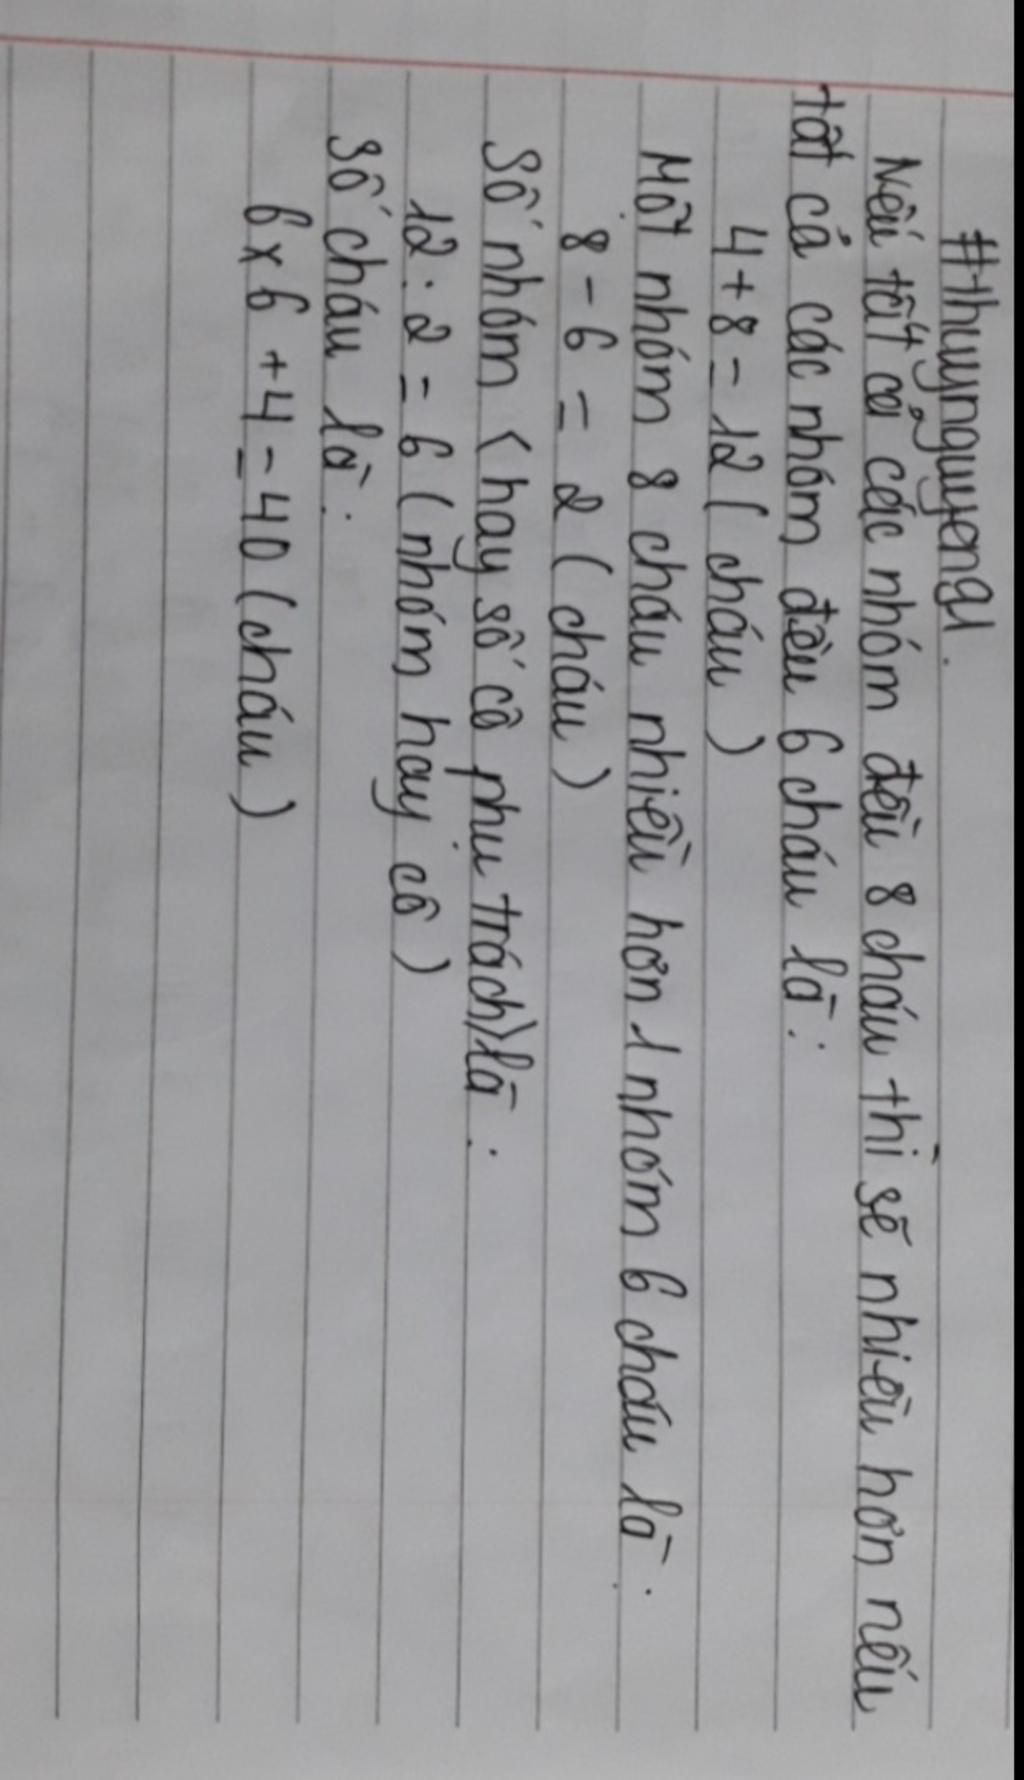 #thuynguyengu.
Nếu tất cả các nhóm đều 8 cháu thì sẽ nhiều hơn nếu
tất cả các nhóm đều 6 cháu là:
4+8=12(cháu)
Một nhóm 8 cháu nhiều hơn 1 nhóm 6 cháu là:
8-6=2(cháu)
Số nhóm <hay số cô phụ trách>là:
12:2=6(nhóm hay cô)
Số cháu là:
6×6+4=40(cháu)